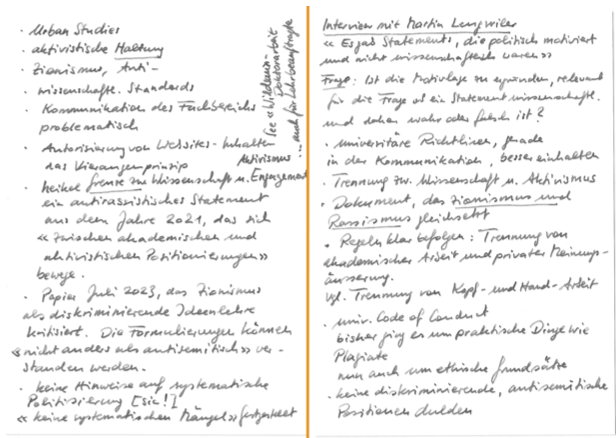 · Urban Studies
· aktivistische Haltung
· Zionismus, Anti-
· wissenschaftl. Standards
· Kommunikation des Fachbereichs
problematisch
· Autorisierung von Websites-Inhalten
das Vieraugenprinzip
· heikel Grenze zw. Wissenschaft u. Engagement
Aktivismus
ein antirassistisches Statement
aus dem Jahre 2021, das sich
«zwischen akademischen und
aktivistischen Positionierungen»
bewege.
· Papier Juli 2023, das Zionismus
als diskriminierende Ideenlehre
kritisiert. Die Formulierungen können
«nicht anders als antisemitisch» ver-
standen werden.
· keine Hinweise auf systematische
Politisierung [sic!]
«keine systematischen Mängel» festgestellt
See «Wildcard»
Doktorarbeit
... auch für Lehrbeauftragte
Interview mit Martin Lengwiler
« Es gab Statements, die politisch motiviert
und nicht wissenschaftlich waren»
Frage: Ist die Motivlage zu ergründen, relevant
für die Frage ob ein Statement wissenschaftl.
und daher wahr oder falsch ist?
· universitäre Richtlinien, gerade
in der Kommunikation, besser einhalten
· Trennung zw. Wissenschaft u. Aktivismus
· Dokument, das Zionismus und
Rassismus gleichsetzt
· Regeln klar befolgen: Trennung von
akademischer Arbeit und privater Meinungs-
äusserung.
vgl. Trennung von Kopf- und Hand-Arbeit
· univ. Code of Conduct
bisher ging es um praktische Dinge wie
Plagiate
nun auch um ethische Grundsätze
· keine diskriminierende, antisemitische
Positionen dulden